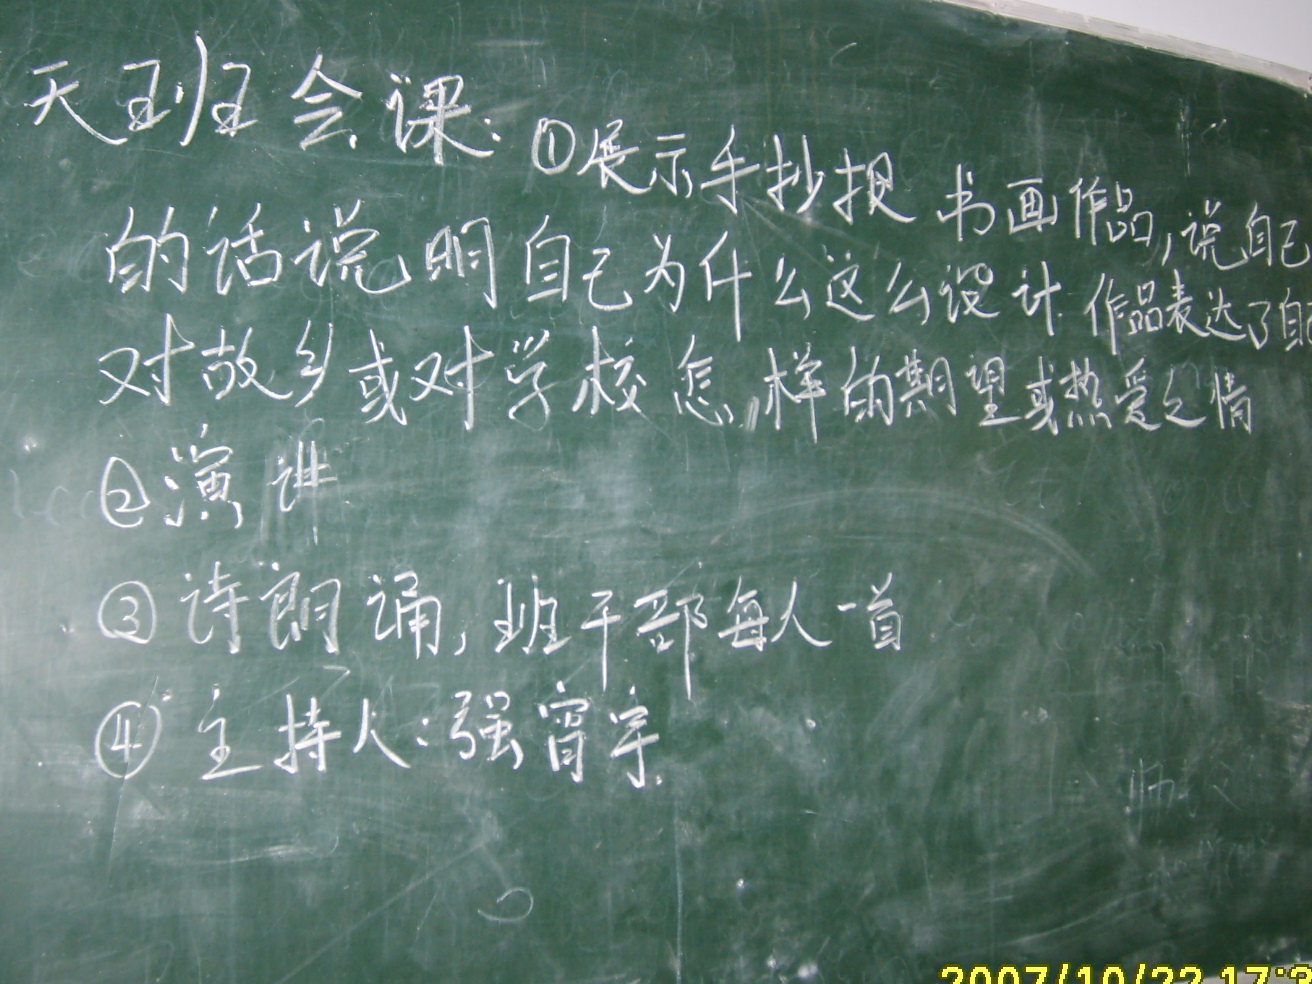 天班会课:①展示手抄报 书画作品,说自己
的话说明自己为什么这么设计 作品表达了自己
对故乡或对学校怎样的期望或热爱之情
②演讲
③诗朗诵,班干部每人一首
④主持人:强宵宇
2007/10/22 17:3